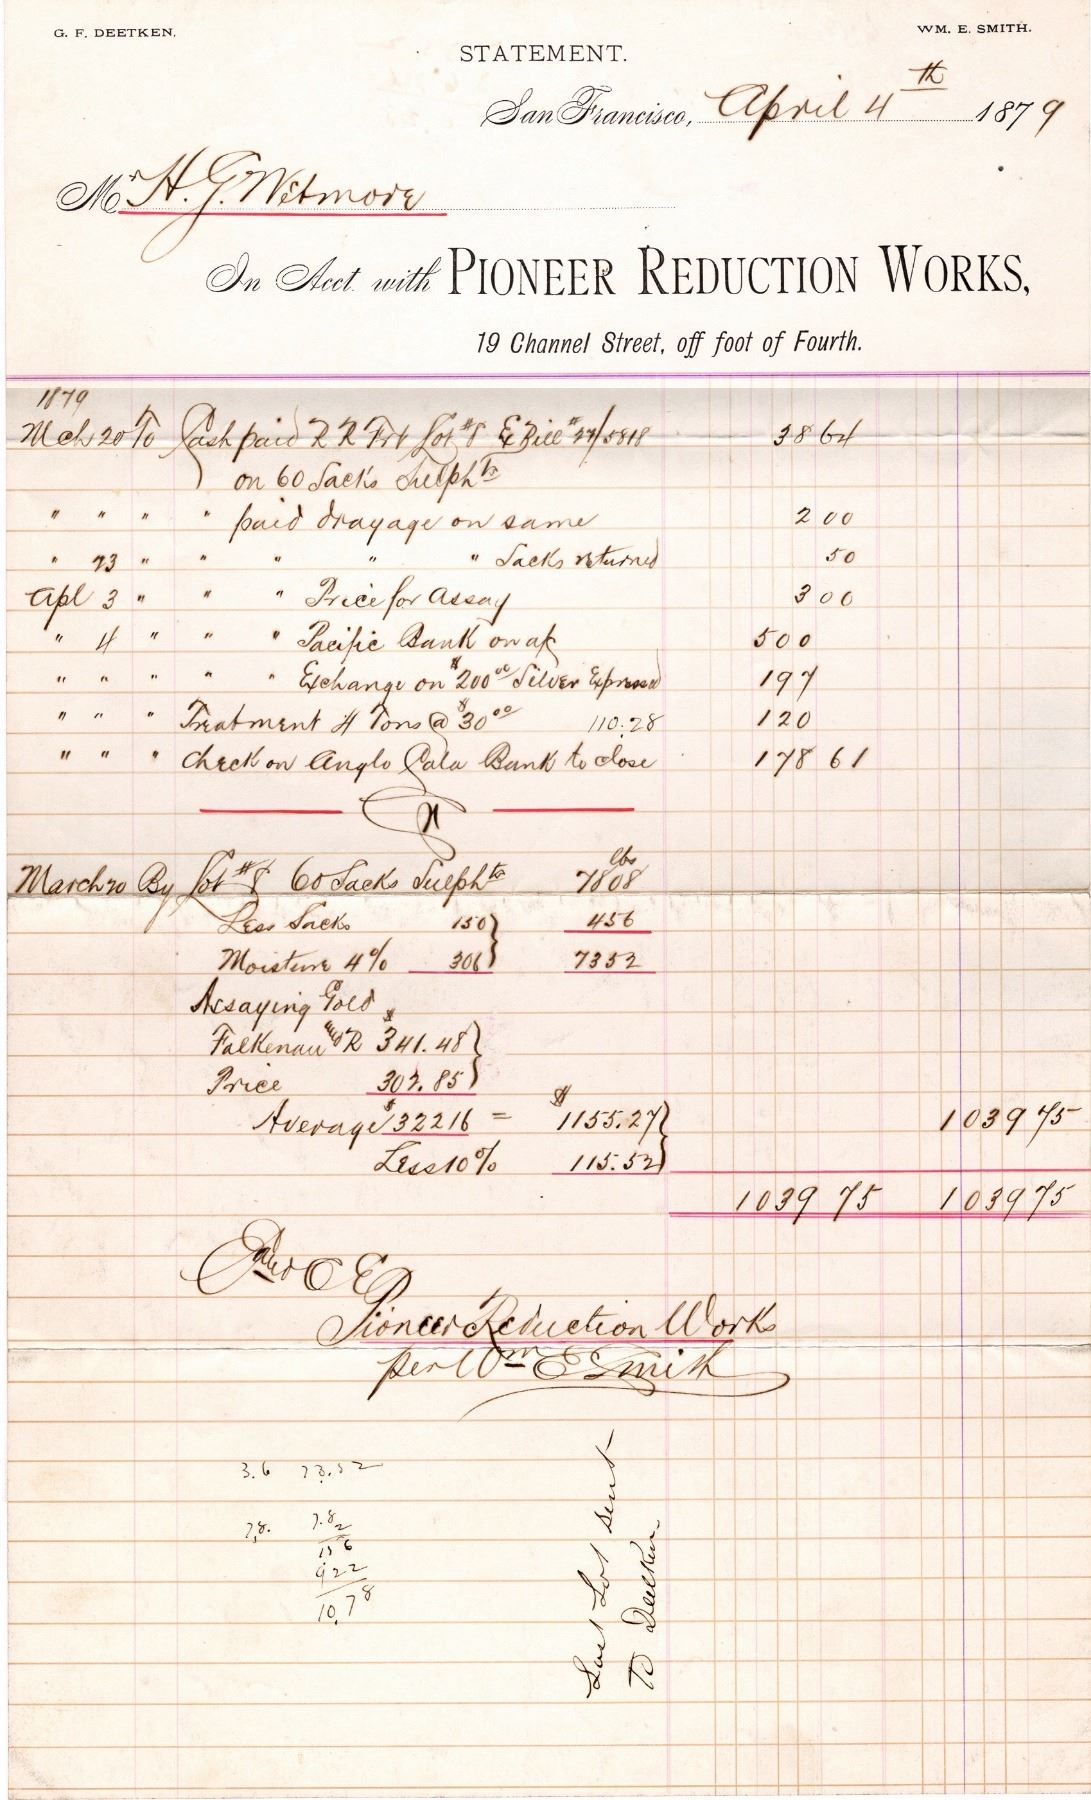 G. F. DEETKEN.
WM. E. SMITH.
STATEMENT.
San Francisco, April 4th 1879
Mr H. G. Wetmore
In Acct. with PIONEER REDUCTION WORKS,
19 Channel Street, off foot of Fourth.
1879
Mch 20 To Cash paid R R Frt Lot #8 Ex Bill 38 64
on 60 Sacks Sulphts
" " " " paid drayage on same 2 00
" 23 " " " " " Sacks returned 50
Apl 3 " " " Price for Assay 3 00
" 4 " " " Pacific Bank on a/c 500
" " " " " Exchange on $200 00 Silver Expressed 197
" " " Treatment 4 Tons @ $30 00 110.28 120
" " " Check on Anglo Cala Bank to close 178 61
March 20 By Lot #8 60 Sacks Sulphts 7808 lbs
Less Sacks 150 } 456
Moisture 4% 306 } 7352
Assaying Gold
Falkenau and R $341.48 }
Price 302.85 }
Average $322 16 = $1155.27 } 1039 75
Less 10% 115.52 }
1039 75 1039 75
E
Pioneer Reduction Works
per Wm E Smith
3.6 73.52
7.8. 7.82
156
922
10.78
Last Lot sent
to Deetken